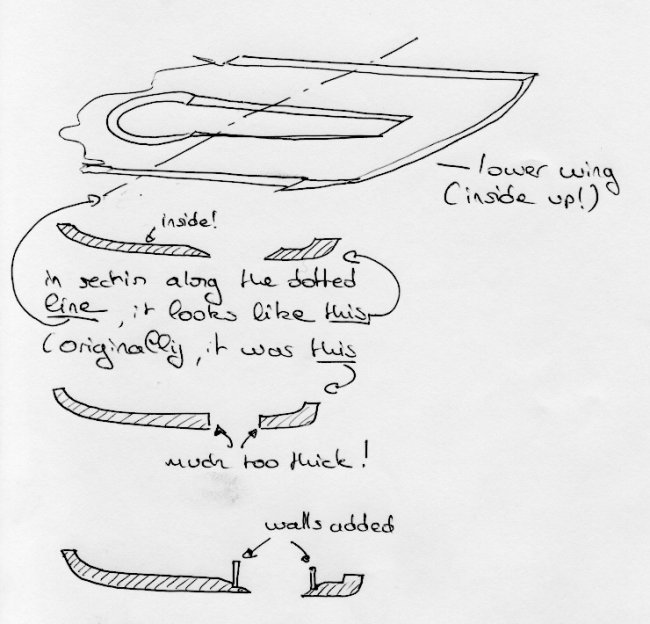 lower wing
(inside up!)
inside!
in section along the dotted
line, it looks like this
(originally, it was this
much too thick!
walls added